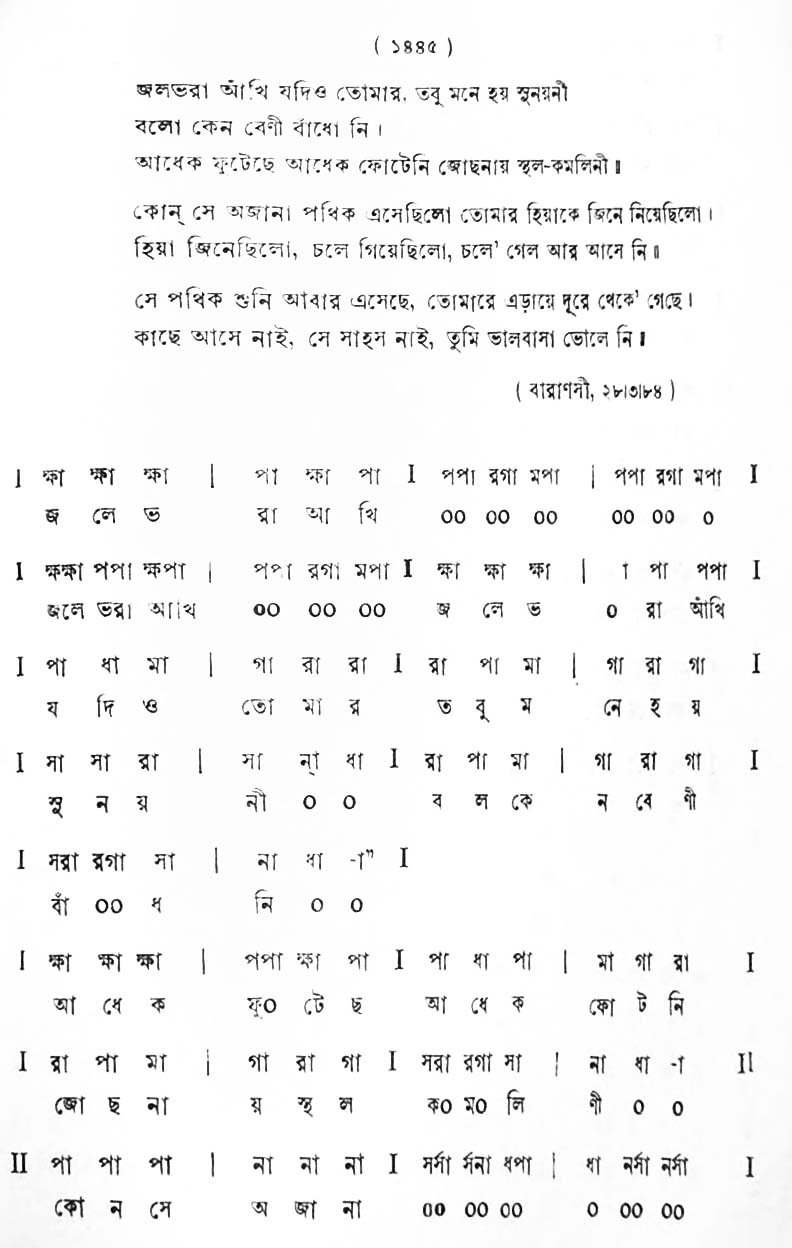 ( ১৪৪৫ )
জলভরা আঁখি যদিও তোমার, তবু মনে হয় সুনয়নী
বলো কেন বেণী বাঁধো নি।
আধেক ফুটেছে আধেক ফোটেনি জোছনায় স্থল-কমলিনী॥
কোন্ সে অজানা পথিক এসেছিলো তোমার হিয়াকে জিনে নিয়েছিলো।
হিয়া জিনেছিলো, চলে গিয়েছিলো, চলে' গেল আর আসে নি॥
সে পথিক শুনি আবার এসেছে, তোমারে এড়ায়ে দূরে থেকে' গেছে।
কাছে আসে নাই, সে সাহস নাই, তুমি ভালবাসা ভোলে নি॥
( বারাণসী, ২৮।৩।৮৪ )
I ক্ষা ক্ষা ক্ষা | পা ক্ষা পা I পপা রগা মপা | পপা রগা মপা I
জ লে ভ রা আ খি ০০ ০০ ০০ ০০ ০০ ০
I ক্ষক্ষা পপা ক্ষপা | পপা রগা মপা I ক্ষা ক্ষা ক্ষা | া পা পপা I
জলে ভরা আখি ০০ ০০ ০০ জ লে ভ ০ রা আঁখি
I পা ধা মা | গা রা রা I রা পা মা | গা রা গা I
য দি ও তো মা র ত বু ম নে হ য়
I সা সা রা | সা ন্া ধা I রা পা মা | গা রা গা I
সু ন য় নী ০ ০ ব ল কে ন বে ণী
I সরা রগা সা | না ধা -া" I
বাঁ ০০ ধ নি ০ ০
I ক্ষা ক্ষা ক্ষা | পপা ক্ষা পা I পা ধা পা | মা গা রা I
আ ধে ক ফু০ টে ছ আ ধে ক ফো ট নি
I রা পা মা | গা রা গা I সরা রগা সা | না ধা -া II
জো ছ না য় স্থ ল ক০ ম০ লি ণী ০ ০
II পা পা পা | না না না I সর্সা র্সনা ধপা | ধা নর্সা নর্সা I
কো ন সে অ জা না ০০ ০০ ০০ ০ ০০ ০০